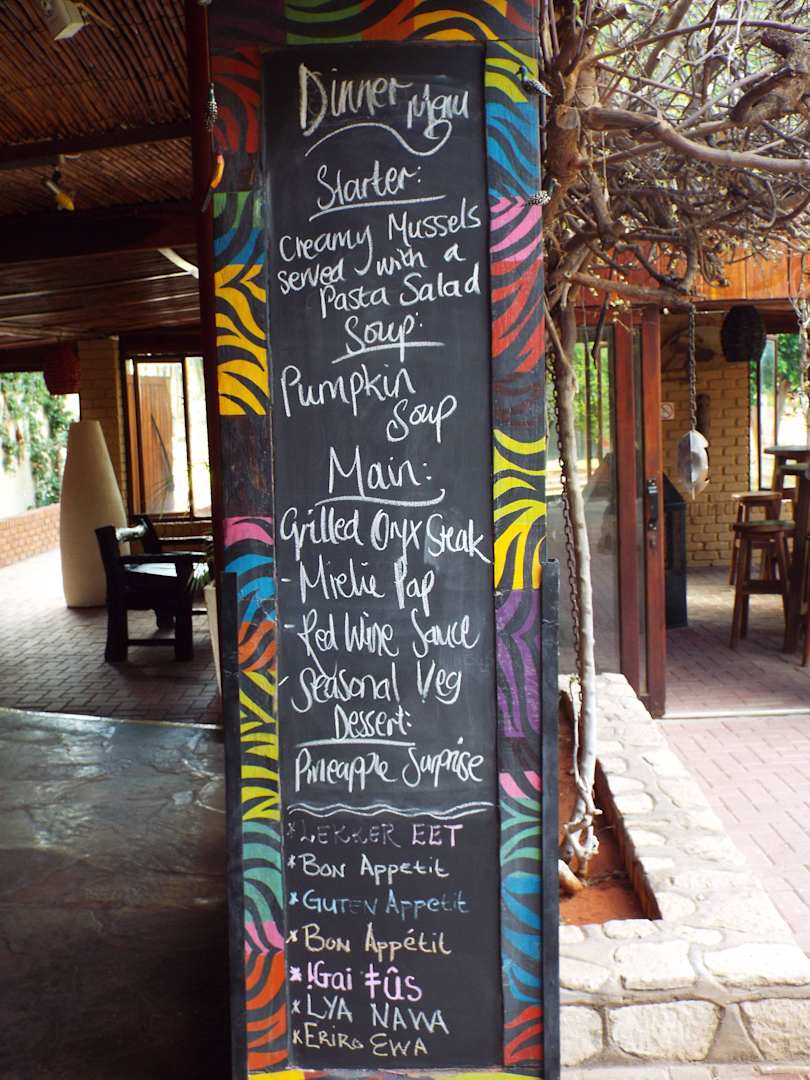 Dinner Menu
Starter:
Creamy Mussels
served with a
Pasta Salad
Soup:
Pumpkin
Soup
Main:
Grilled Oryx Steak
- Mielie Pap
- Red Wine Sauce
- Seasonal Veg
Dessert:
Pineapple Surprise
* LEKKER EET
* Bon Appetit
* GUTEN Appetit
* Bon Appétit
* !Gai ǂûs
* LYA NAWA
* Eriro EWA